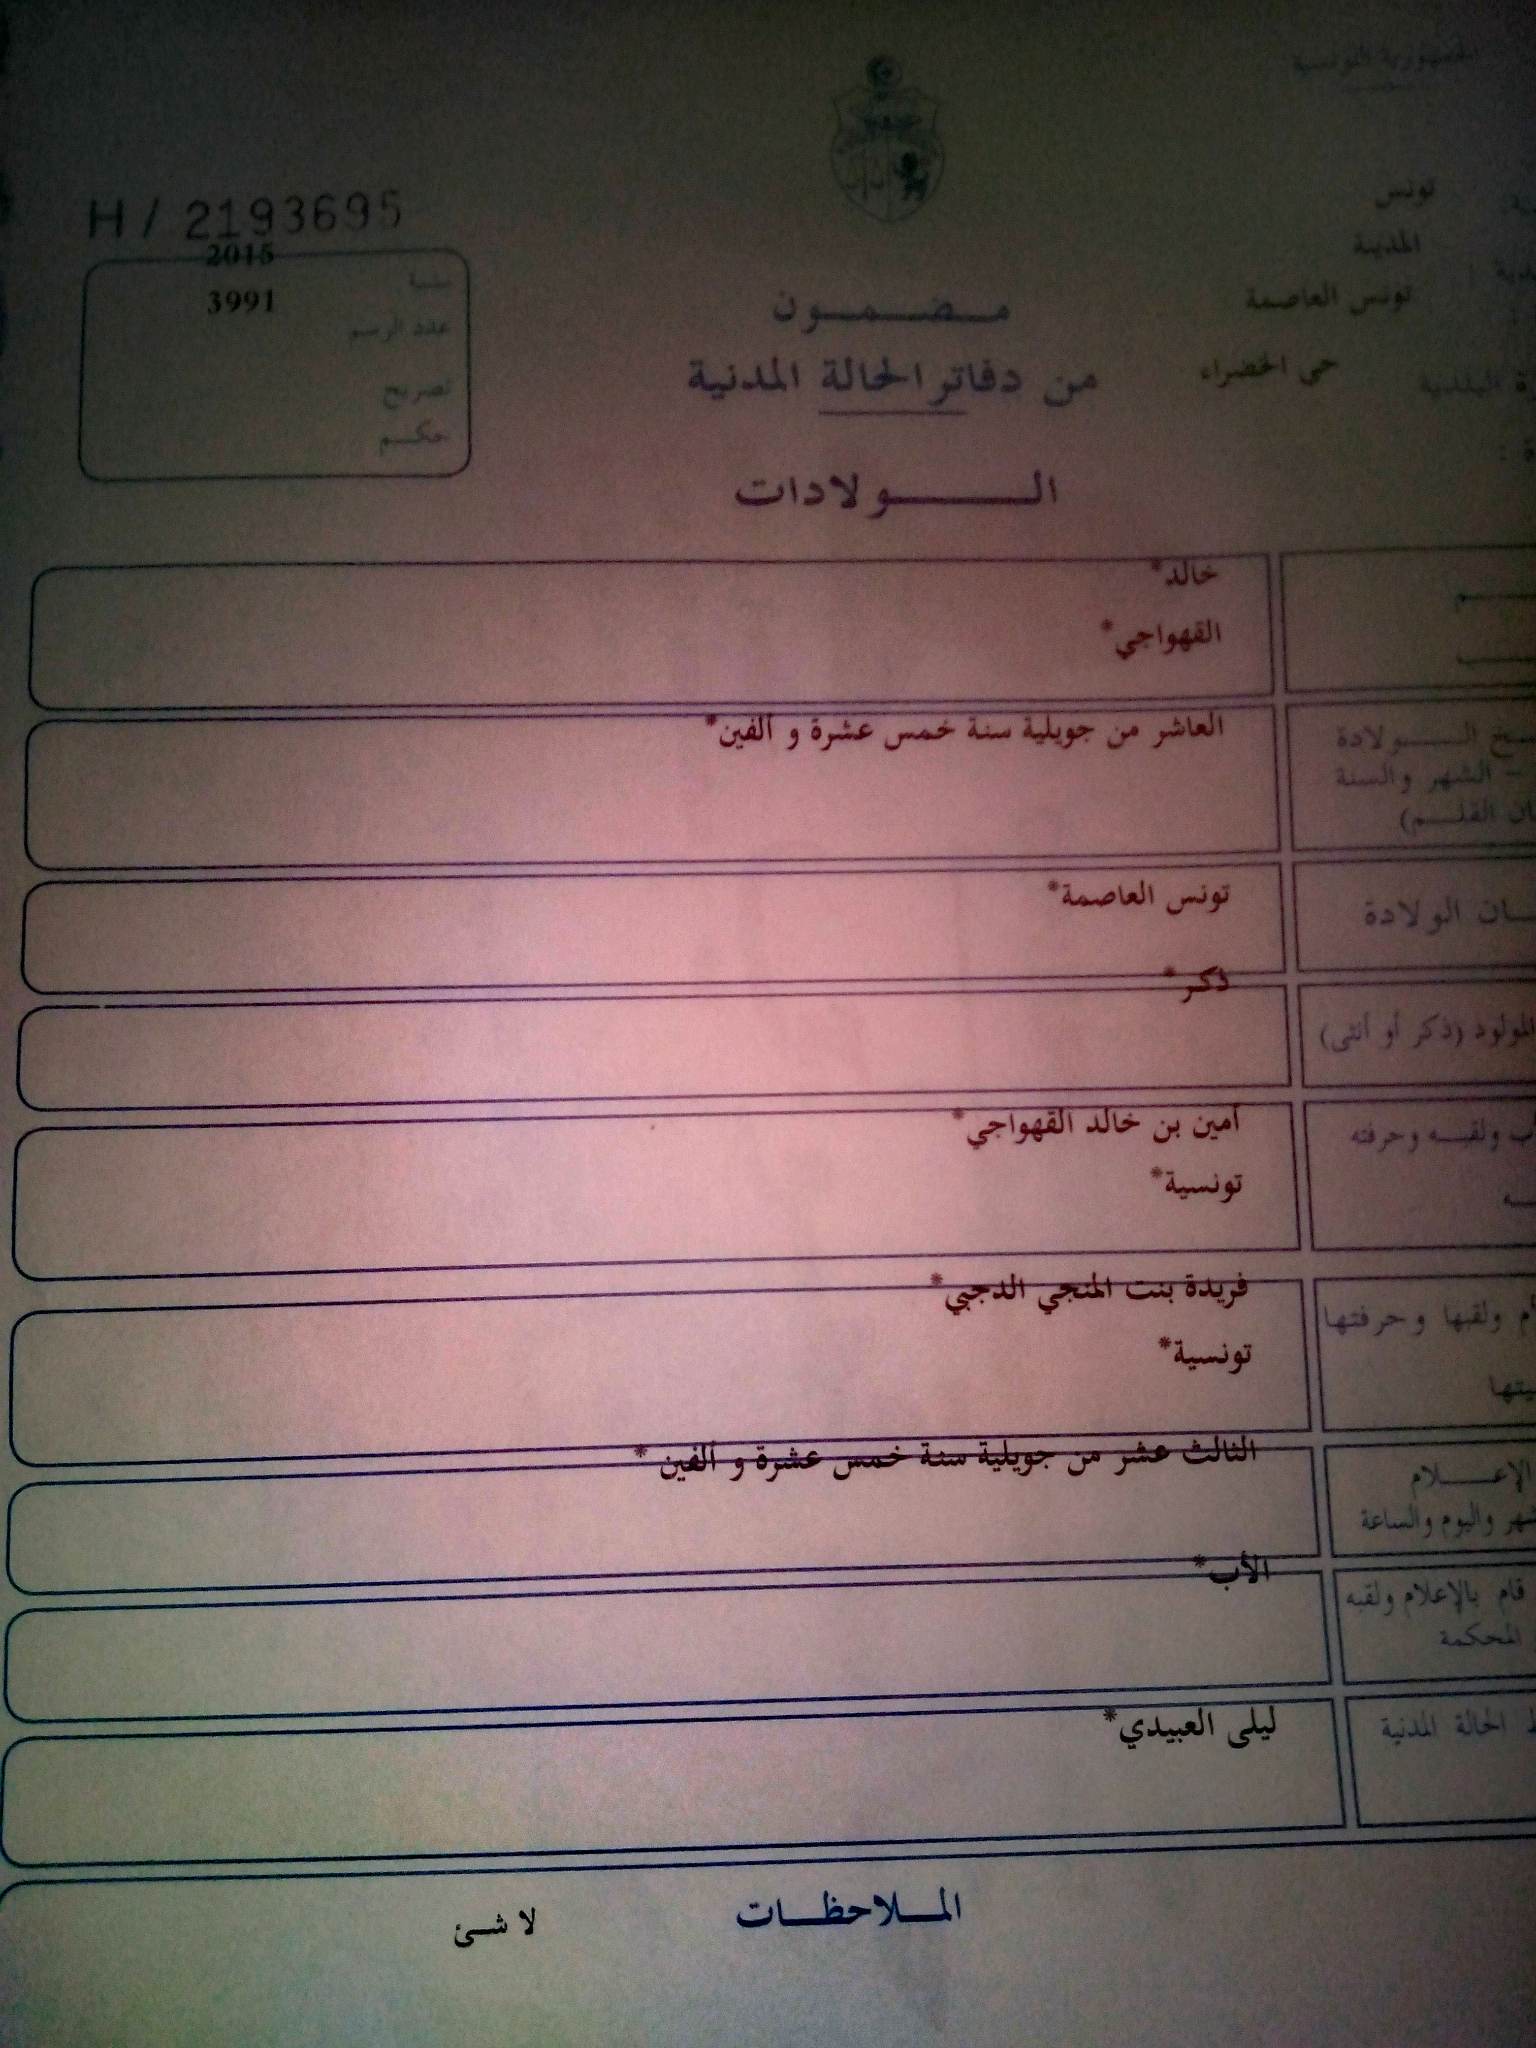 الجمهورية التونسية
تونس
المدينة
تونس العاصمة
حي الخضراء
البلدية
H / 2193695
2015
سنة
3991
عدد الرسم
تصريح
حكم
مضمون
من دفاتر الحالة المدنية
الولادات
خالد*
القهواجي*
الولادة
العاشر من جويلية سنة خمس عشرة و ألفين*
- الشهر والسنة
القلم)
الولادة
تونس العاصمة*
ذكر*
المولود (ذكر أو أنثى)
ولقبه وحرفته
أمين بن خالد القهواجي*
تونسية*
ولقبها وحرفتها
فريدة بنت المنجي الدجبي*
تونسية*
الإعلام
الثالث عشر من جويلية سنة خمس عشرة و ألفين *
واليوم والساعة
الأب*
قام بالإعلام ولقبه
المحكمة
الحالة المدنية
ليلى العبيدي*
الملاحظات
لا شئ